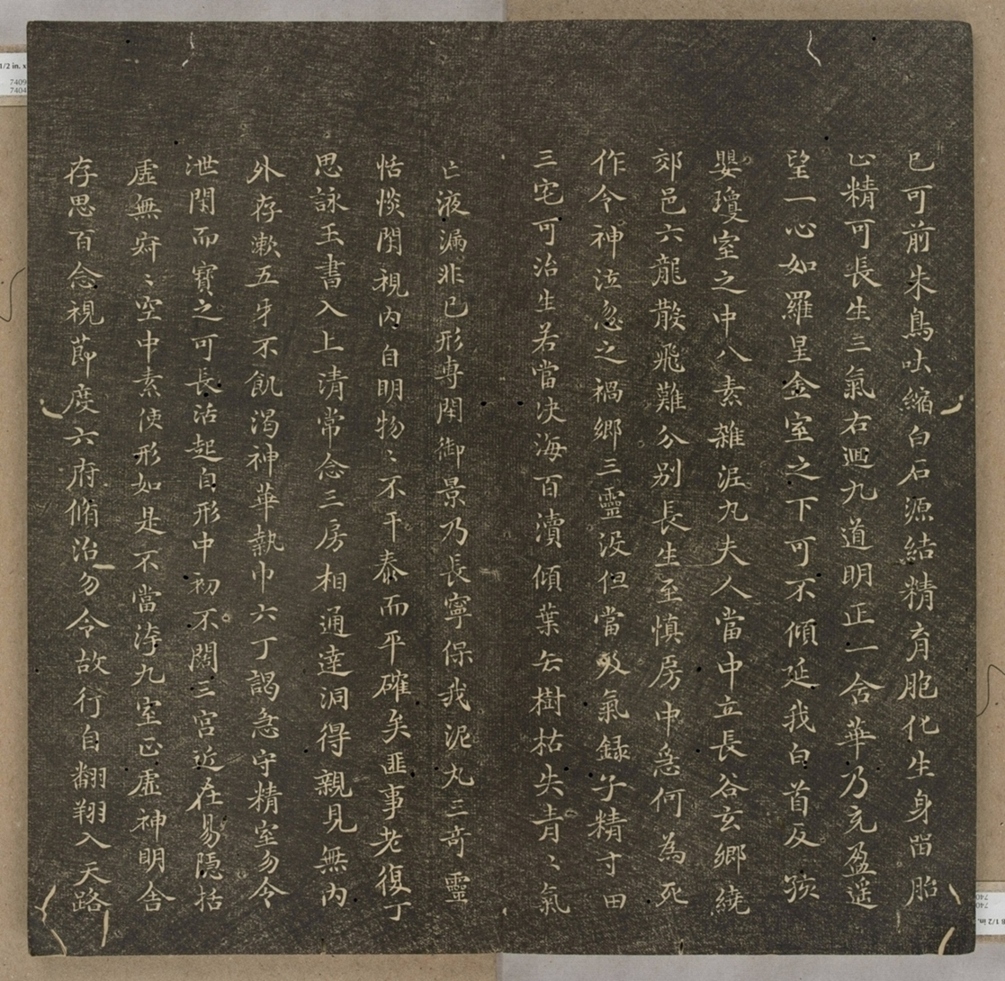 已可前朱鳥吐縮白石源結精育胞化生身留胎
止精可長生三氣右迴九道明正一含華乃充盈遥
望一心如羅星金室之下可不傾延我白首反孩
嬰瓊室之中八素雜泥丸夫人當中立長谷玄鄉繞
郊邑六龍散飛難分別長生至慎房中急何為死
作令神泣忽之禍鄉三靈没但當吸氣録子精寸田
三宅可治生若當决海百瀆傾葉去樹枯失青〻氣
亡液漏非已形專閉御景乃長寧保我泥丸三奇靈
恬惔閉視内自明物〻不干泰而平確矣匪事老復丁
思詠玉書入上清常念三房相通達洞得親見無内
外存漱五牙不飢渴神華執巾六丁謁急守精室勿令
泄閉而寳之可長活起自形中初不闊三宮近在易隱括
虚無寂〻空中素使形如是不當汚九室正虚神明舍
存思百念視節度六府脩治勿令故行自翱翔入天路
1/2 in. x
7409
7404